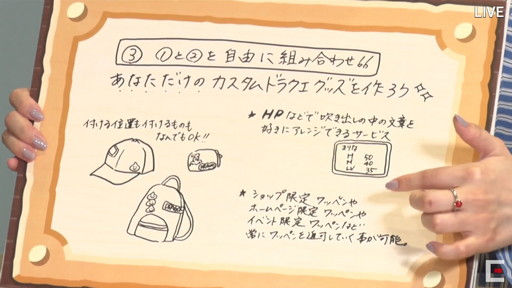 LIVE
③ ①と②を自由に組み合わせ
あなただけのカスタムドラクエグッズを作ろう
付ける位置も付けるものも
なんでもOK!!
★HPなどで吹き出しの中の文章を
好きにアレンジできるサービス
まりな
H 50
M 40
LV 35
★ショップ限定ワッペンや
ホームページ限定ワッペンや
イベント限定ワッペンなど
常にワッペンを追加していく事が可能。